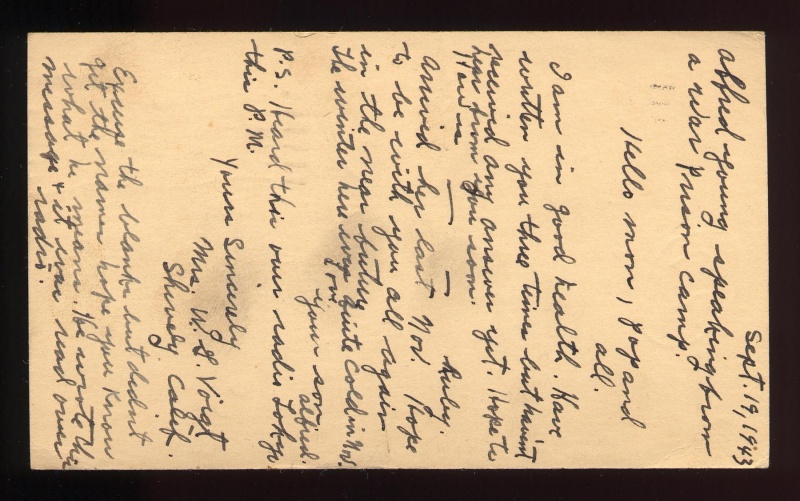 Sept. 19, 1943
Alfred young speaking from
a war Prison camp.
Hello mom, pop and
all.
I am in good health. Have
written you three times but haven't
received any answer yet. Hope to
hear from you soon.
How is — — Ruby.
Arrived here last Nov. Hope
to be with you all again
in the near future
The winter here very quite cold in Nov.
Love
your son
Alfred.
P.S. Heard this over radio Tokyo
this P.M.
Yours Sincerely
Mrs. W. S. Voigt
Shively Calif.
Excuse the blanks but didn't
get the names hope you know
what he means. He wrote this
message & it was read over
radio.